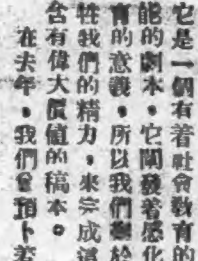 它是一個有着社會教育的
能的劇本。它闡發着感化
育的意義。所以我們對於
牲我們的精力，來完成這
含有偉大價值的稿本。
在去年，我們會預卜若